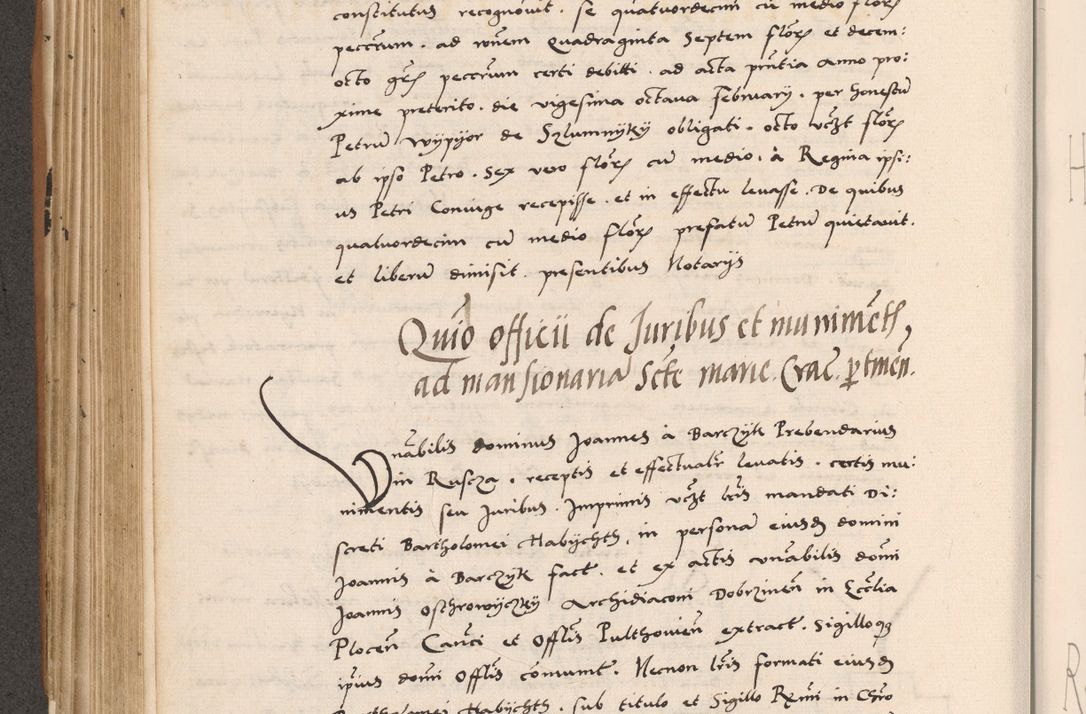 constitutus recognovit. se quatuordecim cū medio florꝭ
peccrum. ad ronem Quadraginta Septem florꝭ et decem:
octo grꝭ peccrum certi debiti. ad acta pñtia anno pro:
xime preterito. die vigesima octava Februarij. per honestū
Petrū Wypijor de Szlumnijkij obligati. octo vczt florꝭ
ab ipso Petro. Sex vero florꝭ cū medio. à Regina ipsi:
us Petri Coniuge recepisse. et in effectu levasse. De quibus
quatuordecim cū medio florꝭ prefatū Petrū quietavit.
et liberū dimisit. presentibus Notarijs
Quiō officii de Juribus et munimeth,
ad mansionaria Scte marie. Crac. ptineñ.
Vnābilis dominus Joannes à Barczijk Prebendarius
in Ruscza. receptis et effectualr levatis. certis mu:
nimentis seu Juribus. Imprimis vczt lris mandati Di:
screti Bartholomei Habijchth, in persona eiusdꝫ domini
Joannis à Barczijk fact. et ex actis vnābilis domi
Joannis Oschrowijczkij Archidiaconi Dobrzineñ in Ecclia
Ploceñ Canci et Offlis Pulthovieñ extract. Sigilloqꝫ
ipius domi Offlis comunit. Necnon lris formati eiusdꝫ
Bartholomei Habijchth. sub titulo et Sigillo Rzmi in Chro